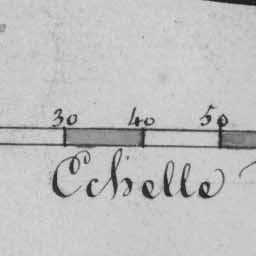 30 40 50
Echelle